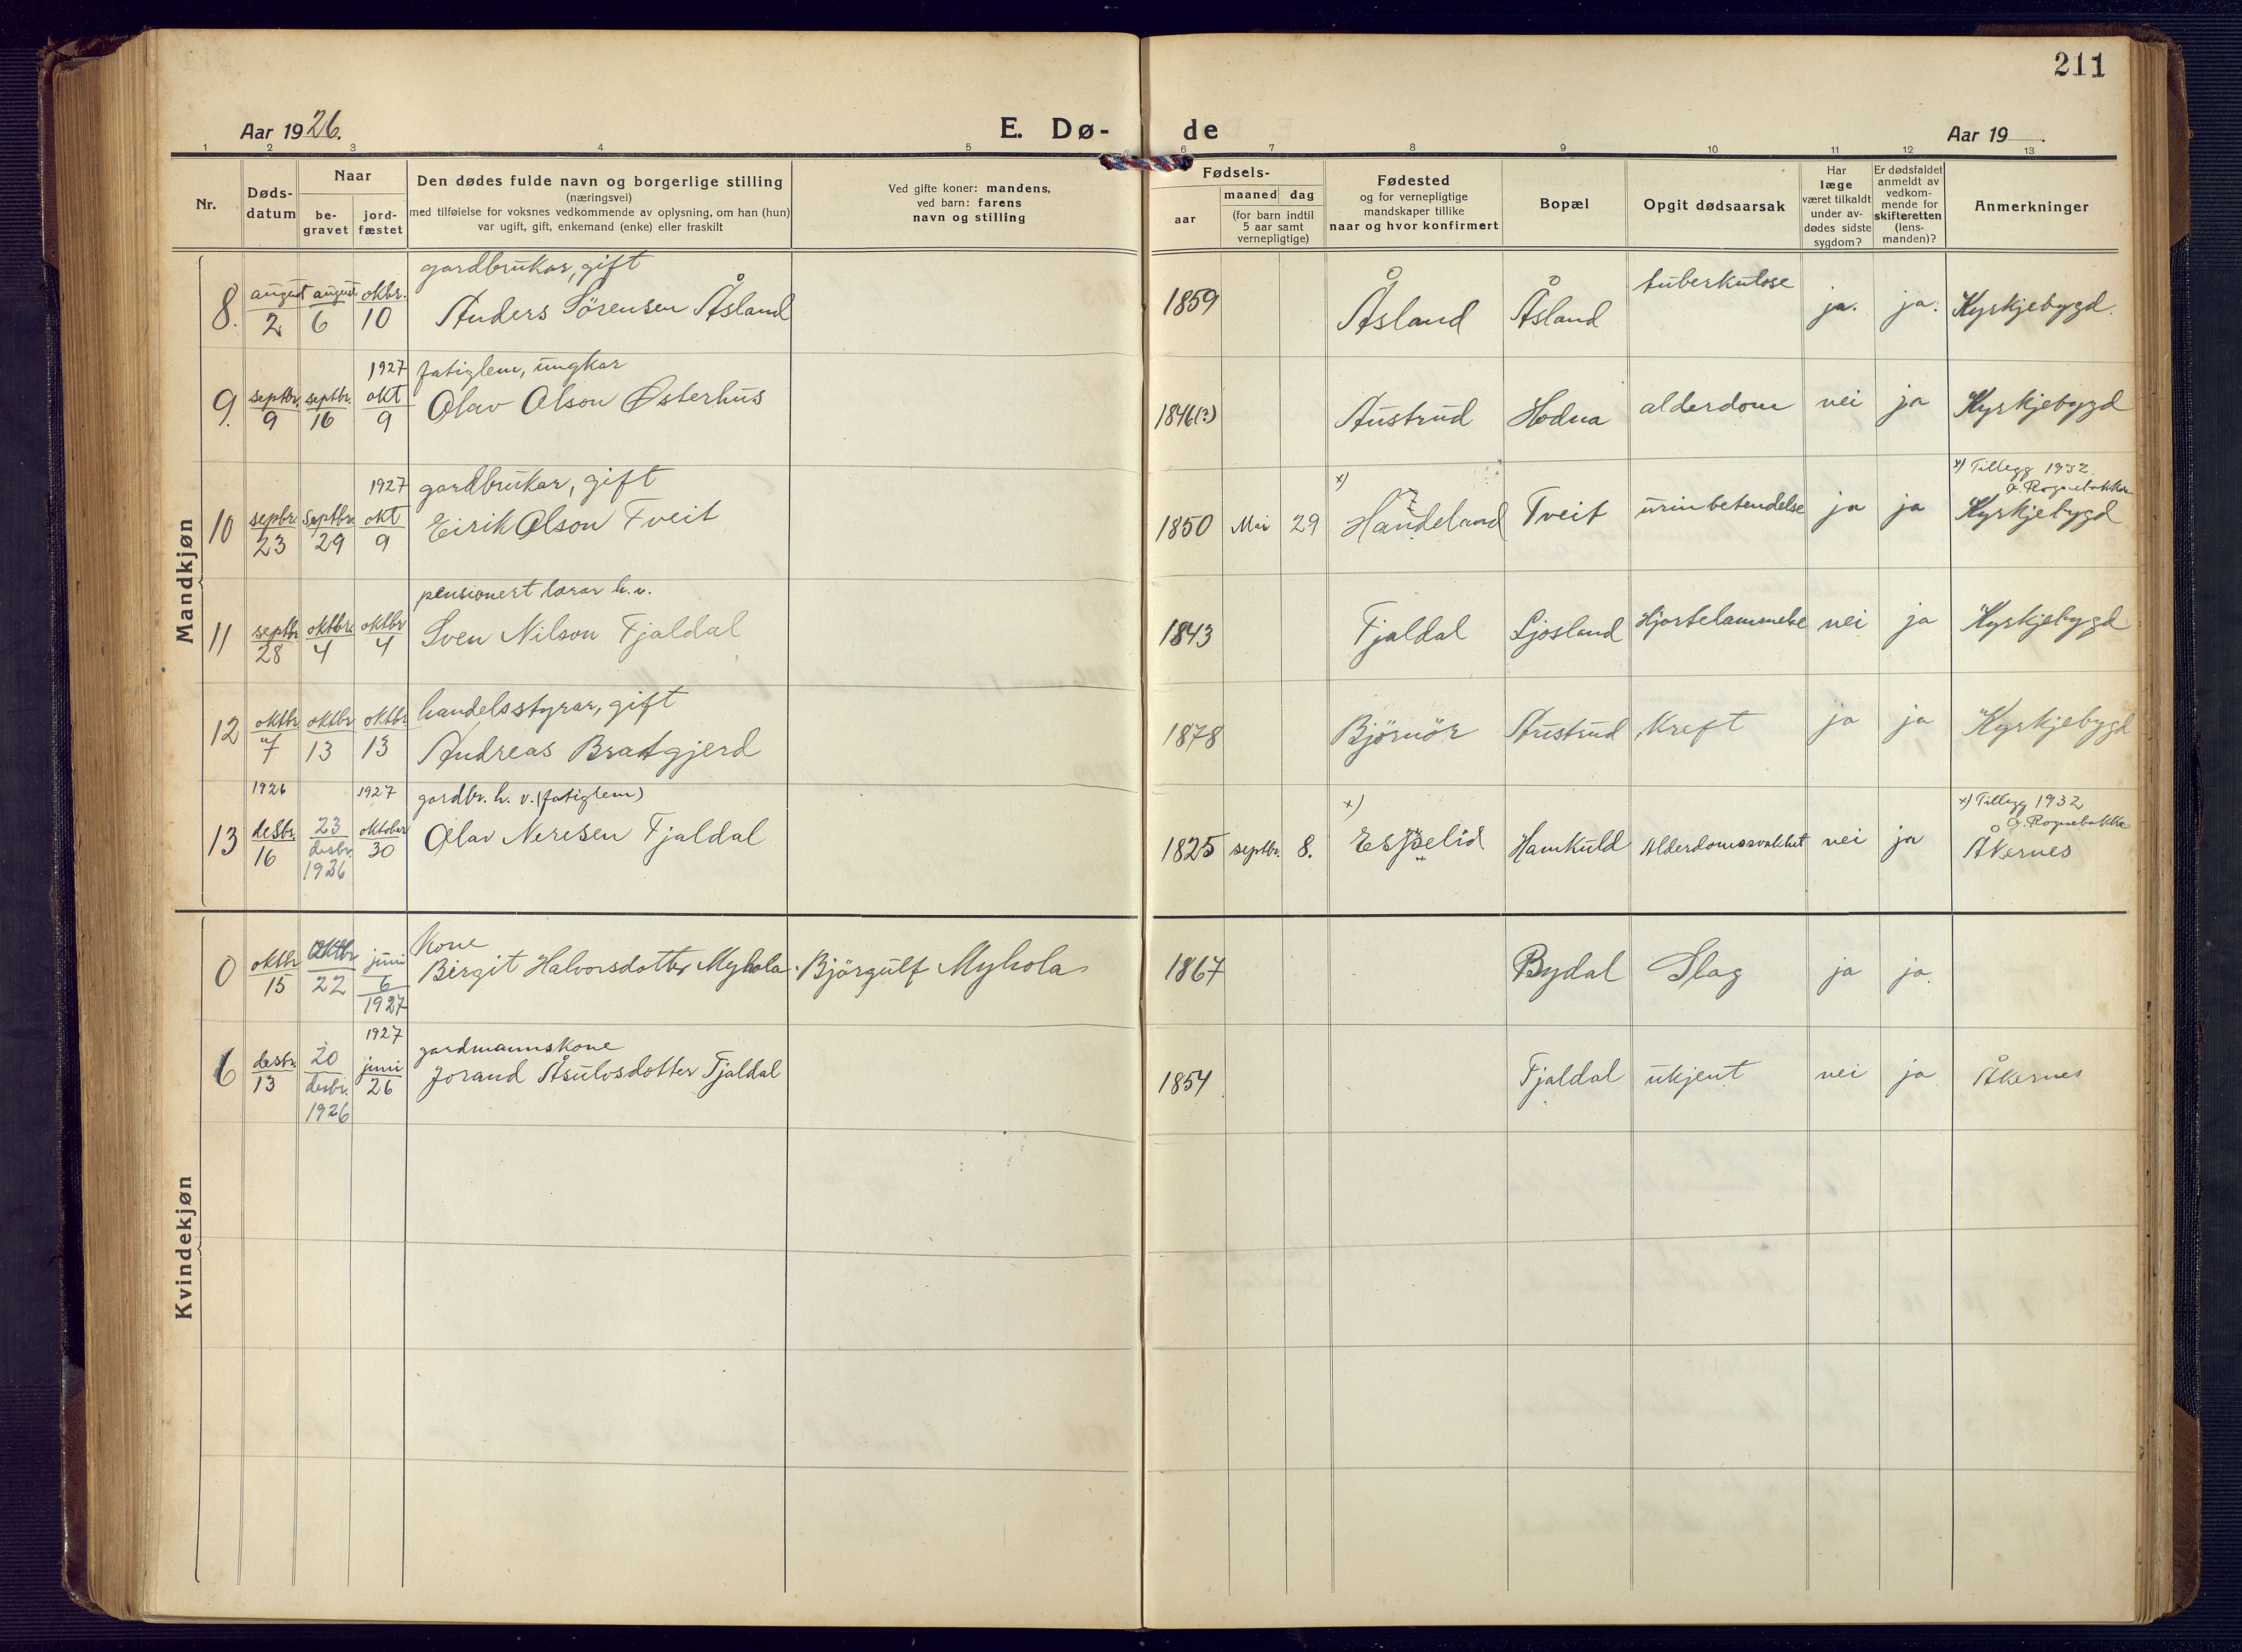 211
Aar 1926.
E. Dø- de
Aar 19
1 2 3 4 5 6 7 8 9 10 11 12 13
Nr.
Døds-
datum
Naar
be-
gravet
jord-
fæstet
Den dødes fulde navn og borgerlige stilling
(næringsvei)
med tilføielse for voksnes vedkommende av oplysning, om han (hun)
var ugift, gift, enkemand (enke) eller fraskilt
Ved gifte koner: mandens,
ved barn: farens
navn og stilling
Fødsels-
aar
maaned dag
(for barn indtil
5 aar samt
vernepligtige)
Fødested
og for vernepligtige
mandskaper tillike
naar og hvor konfirmert
Bopæl
Opgit dødsaarsak
Har
læge
været tilkaldt
under av-
dødes sidste
sygdom?
Er dødsfaldet
anmeldt av
vedkom-
mende for
skifteretten
(lens-
manden)?
Anmerkninger
Mandkjøn
gardbrukar, gift
8. august 2 august 6 oktbr. 10 Anders Sørensen Åsland 1859 Åsland Åsland tuberkulose ja. ja. Kyrkjebygd.
1927 fatiglem, ungkar
9. septbr. 9 septbr. 16 okt 9 Olav Olson Østerhus 1846(?) Austrud Hodna alderdom nei ja Kyrkjebygd
x) x) Tillegg 1932.
1927 gardbrukar, gift
10 septbr. 23 septbr. 29 okt 9 Eirik Olson Tveit 1850 Mai 29 Handeland Tveit urinbetendelse ja ja Kyrkjebygd
pensionert lærar h.v.
11 septbr 28 oktbr. 4 oktbr 4 Sven Nilson Fjaldal 1843 Fjaldal Ljosland Hjartelammelse nei ja Kyrkjebygd
handelsstyrar, gift
12 oktbr. 7 oktbr 13 oktbr. 13 Andreas Brattgjerd 1878 Bjørnör Austrud Kreft ja ja Kyrkjebygd
1926 1927 gardbr. h. v. (fatiglem) x) x) Tillegg 1932
13 desbr. 16 23 desbr. 1926 oktober 30 Olav Neresen Fjaldal 1825 septbr. 8. Espelid Hamkuld Alderdomssvakhet nei ja Åkernes
Kvindekjøn
Kone
oktbr 15 oktbr 22 juni 6 1927 Birgit Halvorsdotter Myhola Bjørgulf Myhola 1867 Bydal Slag ja ja.
1927
gardmannskone
6 desbr. 13 20 desbr. 1926 juni 26 Jorand Åsulvsdotter Fjaldal 1854 Fjaldal ukjent nei ja Åkernes